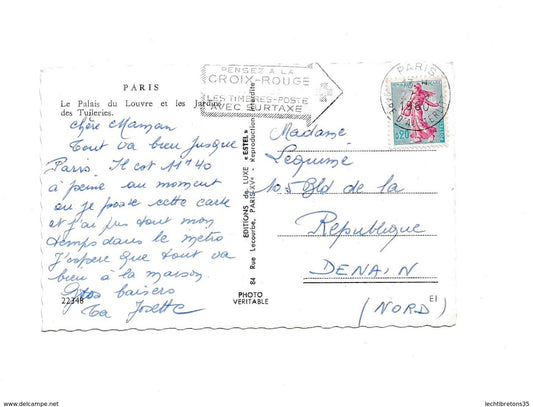 PENSEZ A LA
CROIX-ROUGE
LES TIMBRES-POSTE
AVEC SURTAXE
PARIS
1960
0,20
PARIS
Le Palais du Louvre et les Jardins
des Tuileries.
chère Maman
Tout va bien jusque
Paris. Il est 11h40
à peine au moment
ou je poste cette carte
et j'ai pris tout mon
temps dans le métro
J'espère que tout va
bien à la maison.
Gros baisers
Ta Josette
22348
EDITIONS de LUXE "ESTEL"
84 Rue Lecourbe, PARIS-XVe - Reproduction interdite
PHOTO
VERITABLE
Madame
Lequime
105 Bld de la
République
DENAIN
(NORD)
EI
www.delcampe.net
lechtibretons35